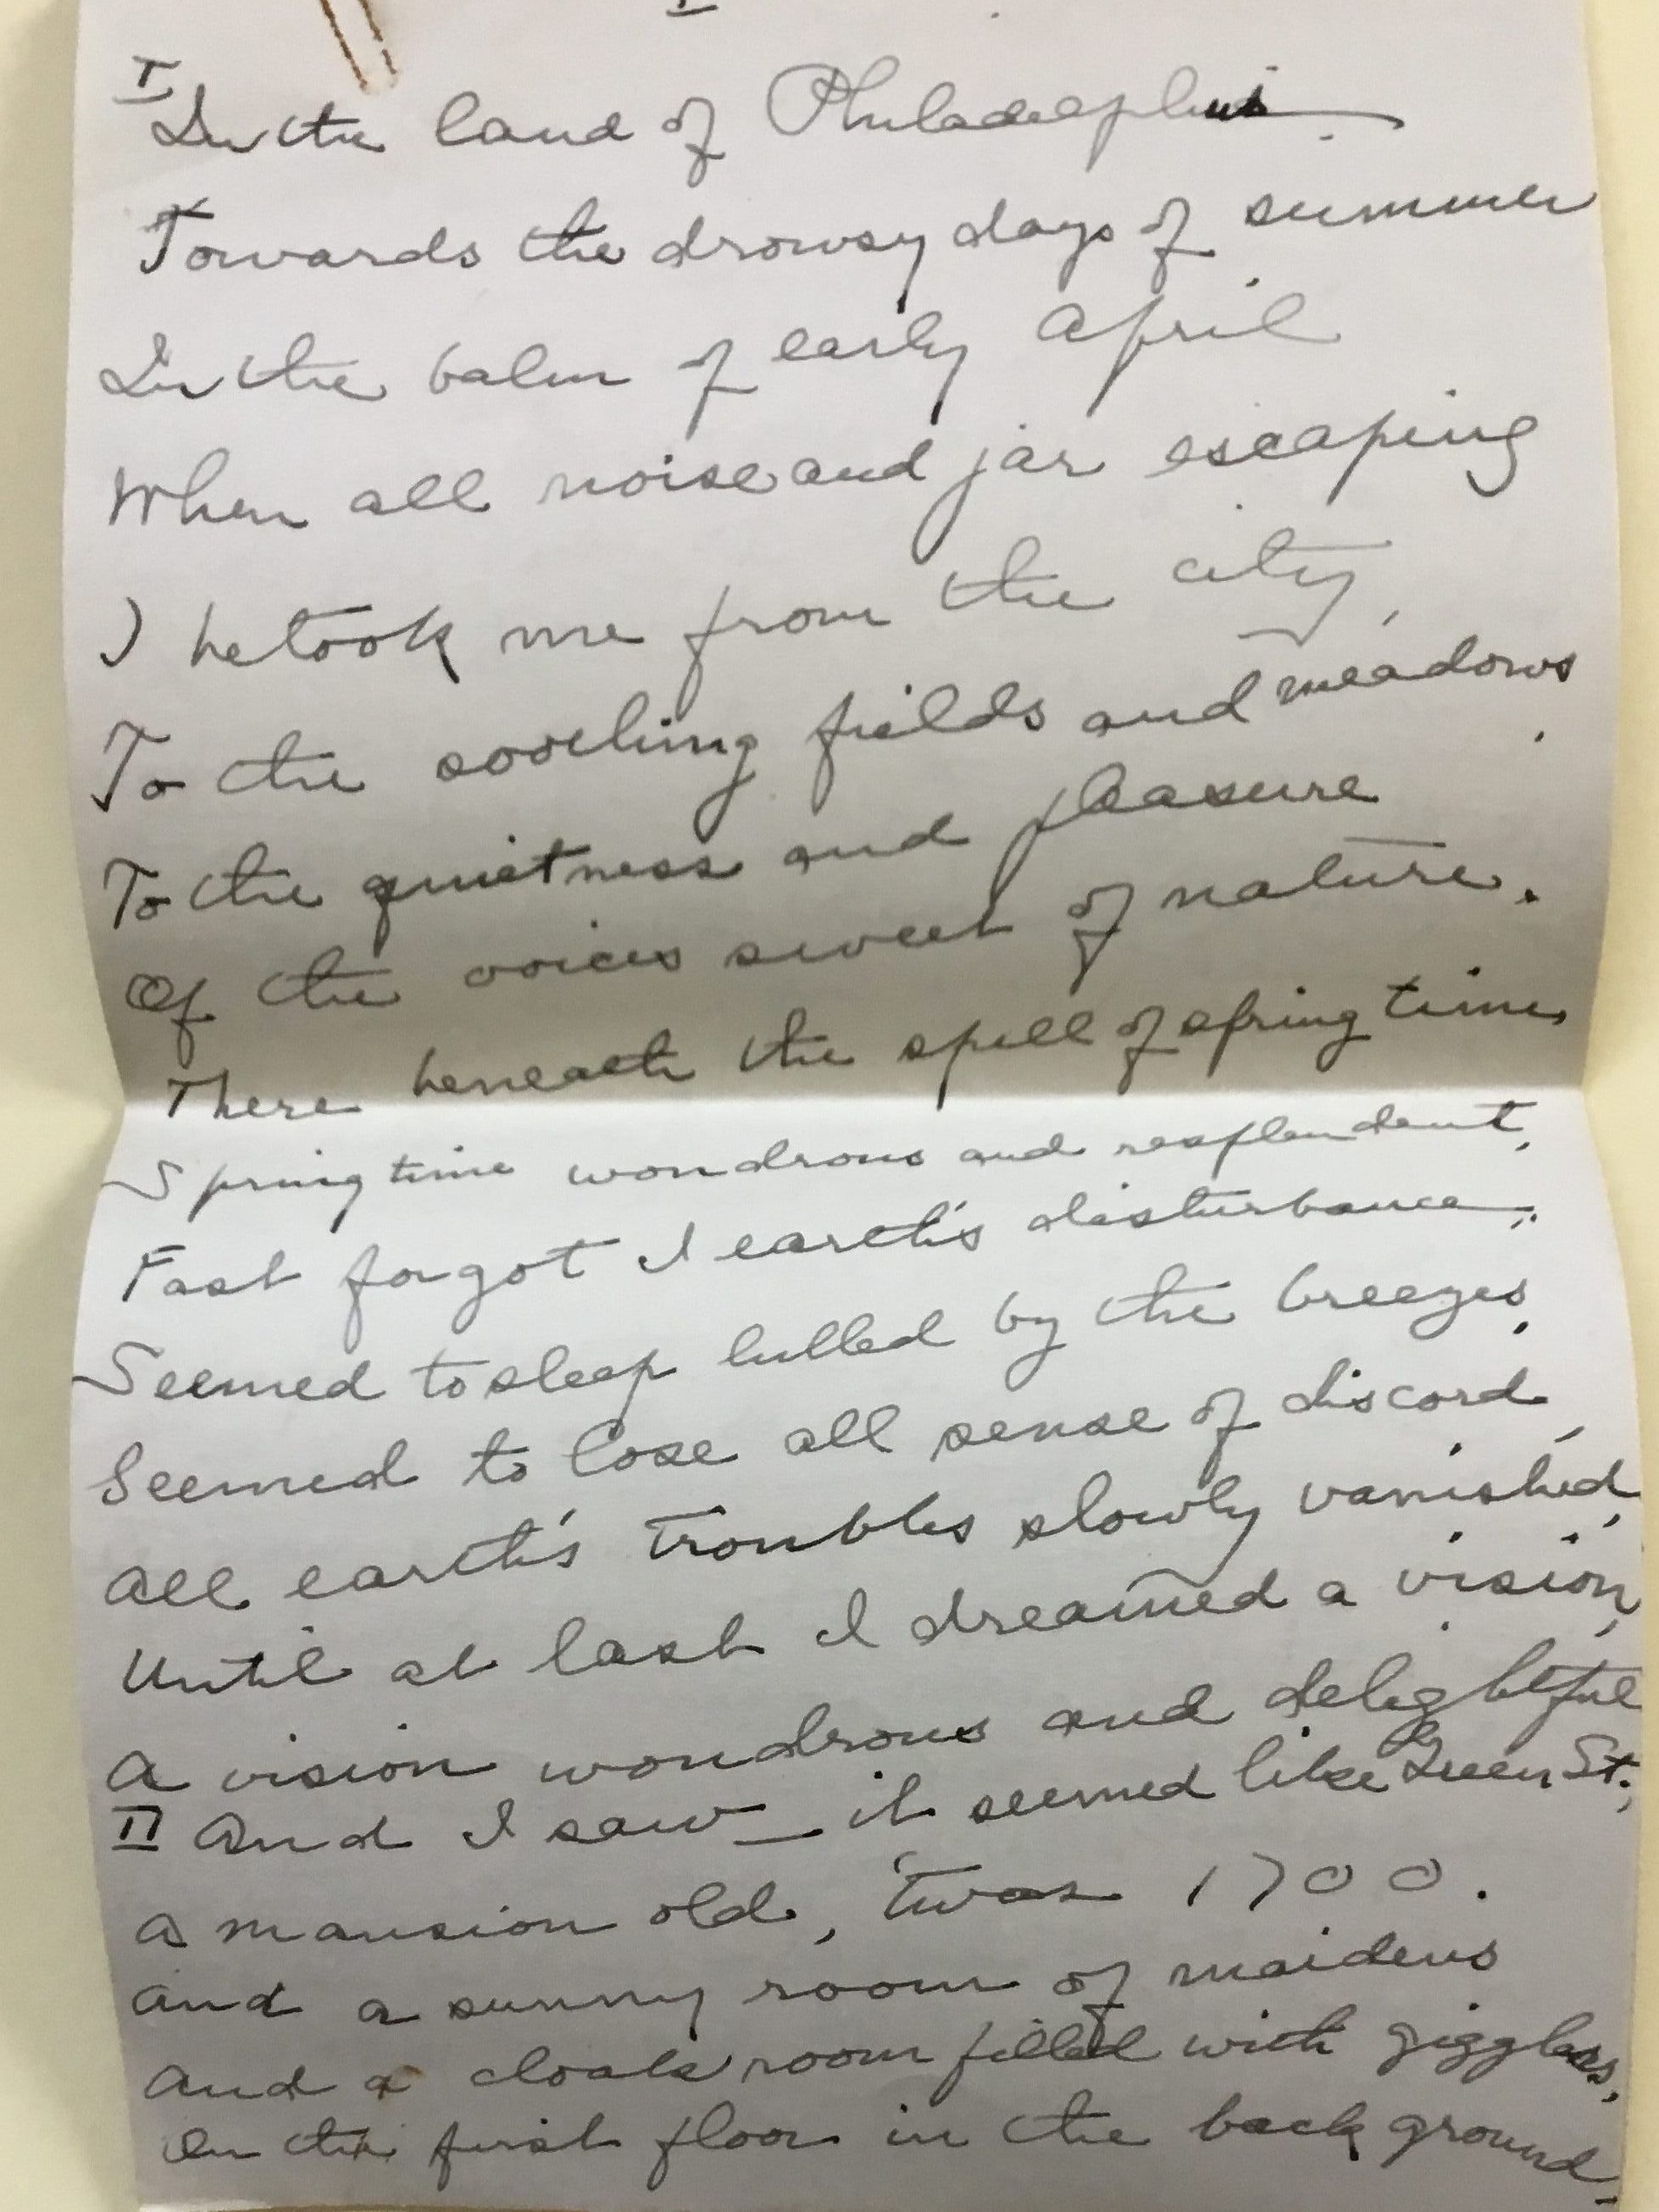 I
In the land of Philadelphia
Towards the drowsy days of summer
In the balm of early April
When all noise and jar escaping
I betook me from the city,
To the soothing fields and meadows
To the quietness and pleasure
Of the voices sweet of nature.
There beneath the spell of spring time,
Springtime wondrous and resplendent,
Fast forgot I earth's disturbance,
Seemed to sleep lulled by the breezes,
Seemed to lose all sense of discord,
All earth's troubles slowly vanished,
Until at last I dreamed a vision,
A vision wondrous and delightful
II And I saw – it seemed like Green St.;
A mansion old, 'twas 1700.
And a sunny room of maidens
And a cloak room filled with giggles,
On the first floor in the back ground,